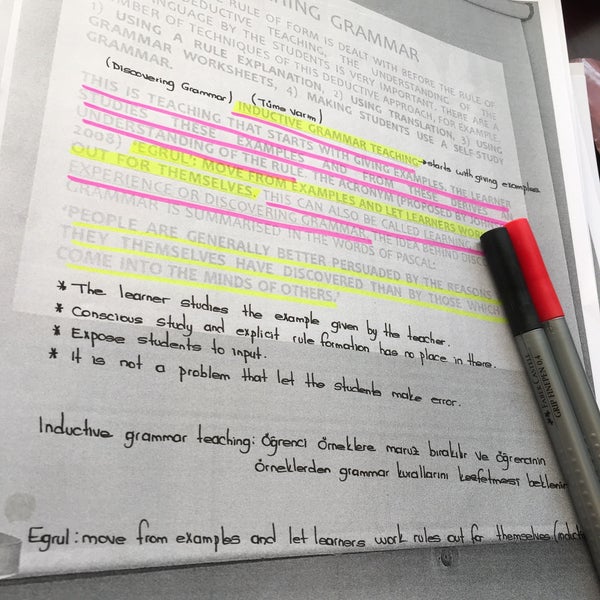 HING GRAMMAR
RULE OF FORM IS DEALT WITH BEFORE THE RULE OF
DEDUCTIVE TEACHING, THE UNDERSTANDING OF THE
LANGUAGE BY THE STUDENTS IS VERY IMPORTANT. THERE ARE A
MBER OF TECHNIQUES OF THIS DEDUCTIVE APPROACH, FOR EXAMPLE
1) USING A RULE EXPLANATION, 2) USING TRANSLATION, 3) USING
GRAMMAR WORKSHEETS, 4) MAKING STUDENTS USE A SELF-STUDY
GRAMMAR.
(Discovering Grammar) (Tüme varım)
INDUCTIVE GRAMMAR TEACHING → starts with giving examples
THIS IS TEACHING THAT STARTS WITH GIVING EXAMPLES. THE LEARNER
STUDIES THESE EXAMPLES AND FROM THESE DERIVES AN
UNDERSTANDING OF THE RULE. THE ACRONYM (PROPOSED BY
2008) 'EGRUL': MOVE FROM EXAMPLES AND LET LEARNERS WORK
OUT FOR THEMSELVES. THIS CAN ALSO BE CALLED LEARNING
EXPERIENCE OR DISCOVERING GRAMMAR. THE IDEA BEHIND
GRAMMAR IS SUMMARISED IN THE WORDS OF PASCAL:
'PEOPLE ARE GENERALLY BETTER PERSUADED BY THE REASONS
THEY THEMSELVES HAVE DISCOVERED THAN BY THOSE WHICH
COME INTO THE MINDS OF OTHERS.'
* The learner studies the example given by the teacher.
* Conscious study and explicit rule formation has no place in there.
* Expose students to input.
* It is not a problem that let the students make error.
Inductive grammar teaching: Öğrenci örneklere maruz bırakılır ve öğrencinin
örneklerden grammar kurallarını keşfetmesi beklenir
Egrul: move from examples and let learners work rules out for themselves (induct
FABER-CASTELL
GRIP FINEPEN 0.4